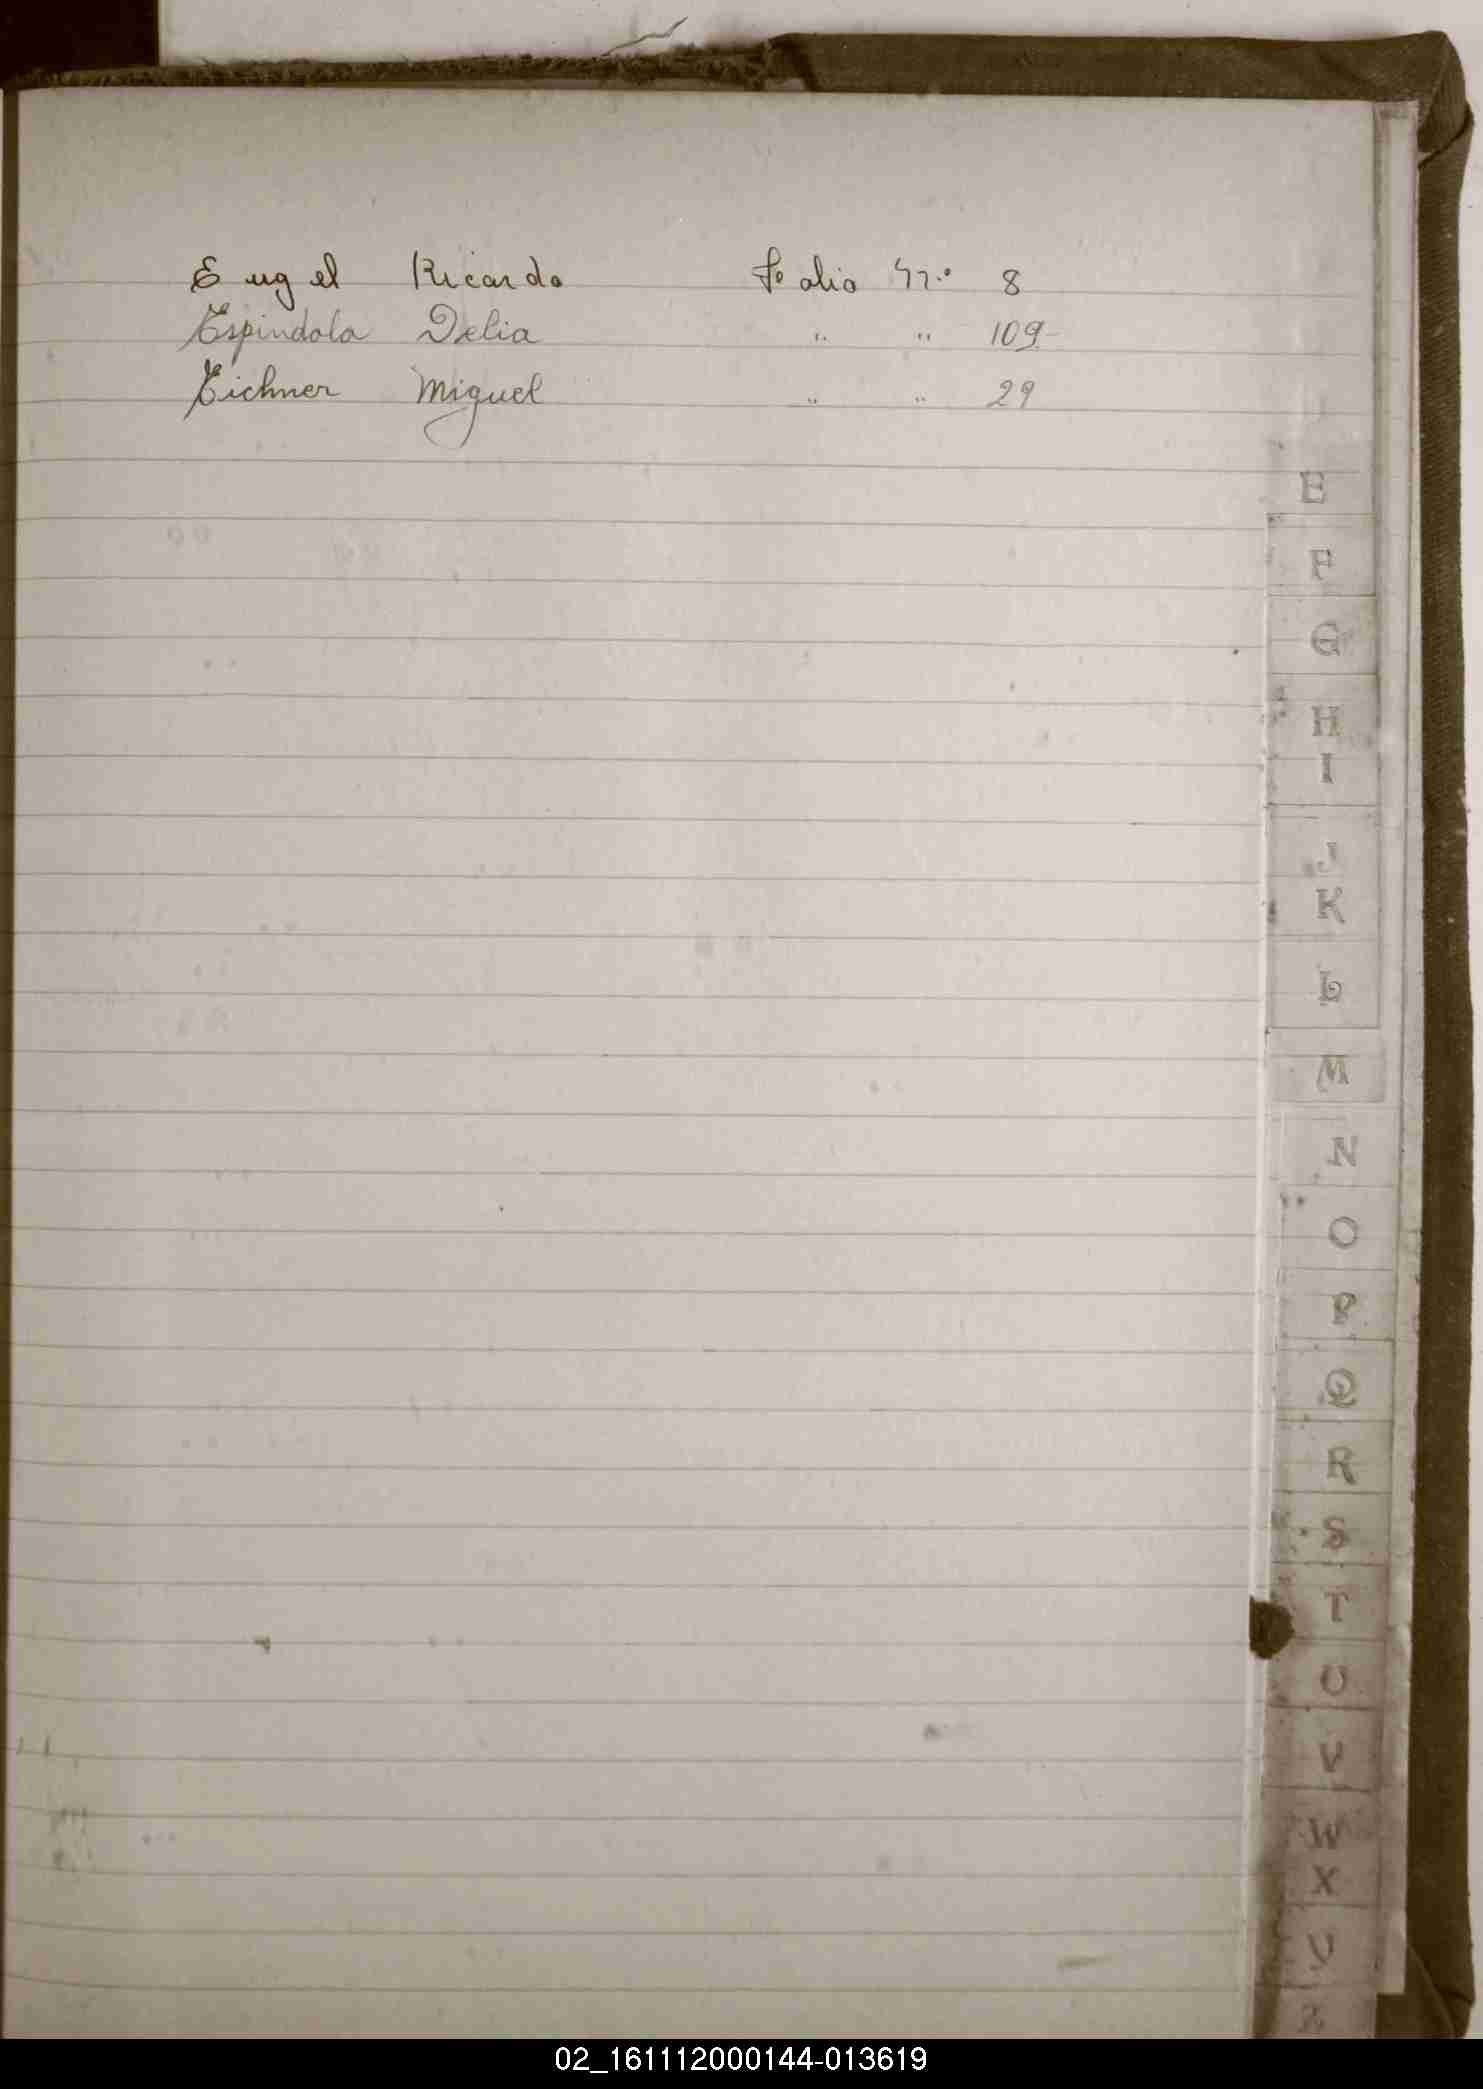 Engel Ricardo Folio Nº 8
Espindola Delia " " 109-
Eichner Miguel " " 29
E
F
G
H
I
J
K
L
M
N
O
P
Q
R
S
T
U
V
W
X
Y
Z
02_161112000144-013619